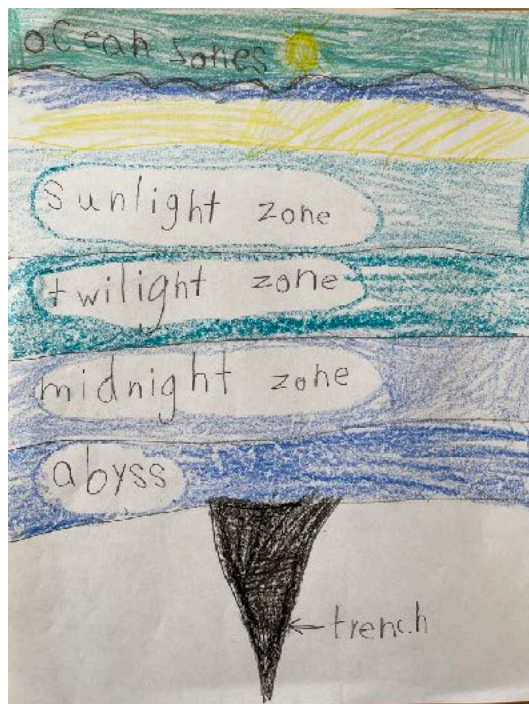 ocean zones
sunlight zone
twilight zone
midnight zone
abyss
trench